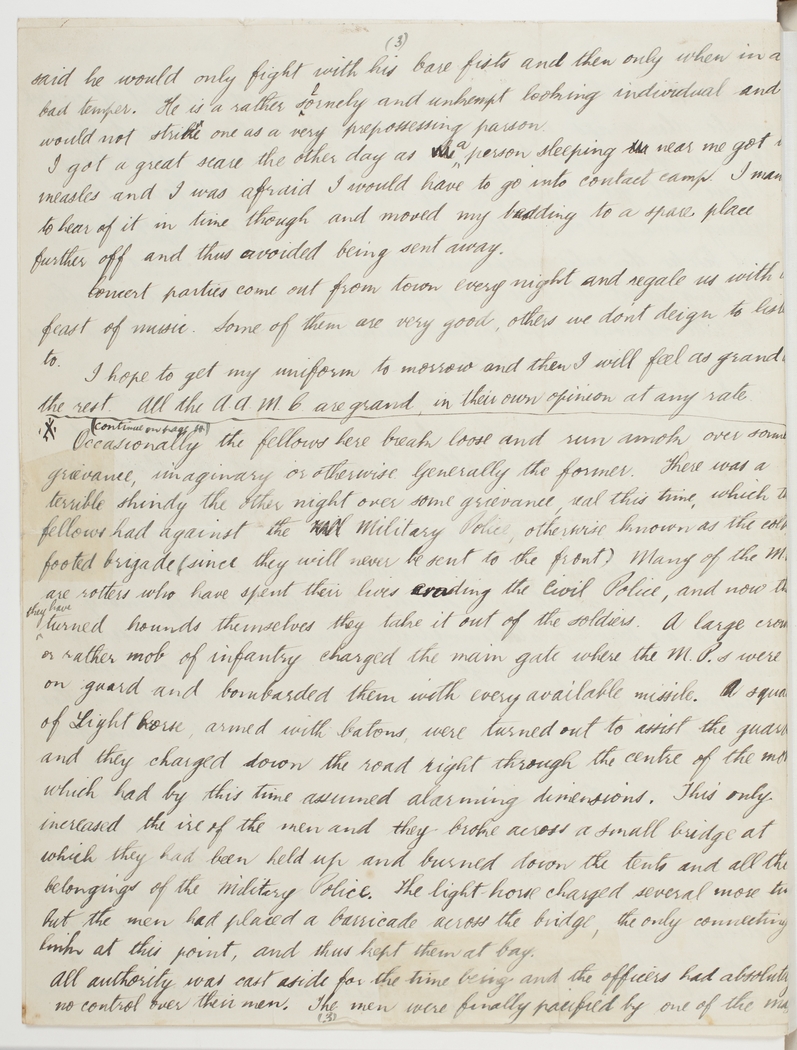 (3)
said he would only fight with his bare fists and then only when in a
bad temper. He is a rather and unkempt looking individual and
would not strike one as a very prepossessing person.
I got a great scare the other day as a person sleeping near me got
measles and I was afraid I would have to go into contact camp. I man
to hear of it in time though and moved my bedding to a spare place
further off and thus avoided being sent away.
Concert parties come out from town every night and regale us with
feast of music. Some of them are very good, others we don't deign to list
to.
I hope to get my uniform to morrow and then I will feel as grand
the rest. All the A.A.M.C. are grand, in their own opinion at any rate.
(continued on page 4.)
Occasionally the fellows here break loose and run amok over some
grievance, imaginary or otherwise. Generally the former. There was a
terrible shindy the other night over some grievance, real this time, which t
fellows had against the Military Police, otherwise known as the cold
footed brigade (since they will never be sent to the front) Many of the M
are rotters who have spent their lives evading the Civil Police, and now th
they have
turned hounds themselves they take it out of the soldiers. A large crow
or rather mob of infantry charged the main gate where the M.P.s were
on guard and bombarded them with every available missile. A squa
of Light horse, armed with batons, were turned out to assist the guard
and they charged down the road right through the centre of the mo
which had by this time assumed alarming dimensions. This only
increased the ire of the men and they broke across a small bridge at
which they had been held up and burned down the tents and all the
belongings of the Military Police. The light-horse charged several more ti
but the men had placed a barricade across the bridge, the only connecting
link at this point, and thus kept them at bay.
All authority was cast aside for the time being and the officers had absolutely
no control over their men. The men were finally pacified by one of the ma
(3)